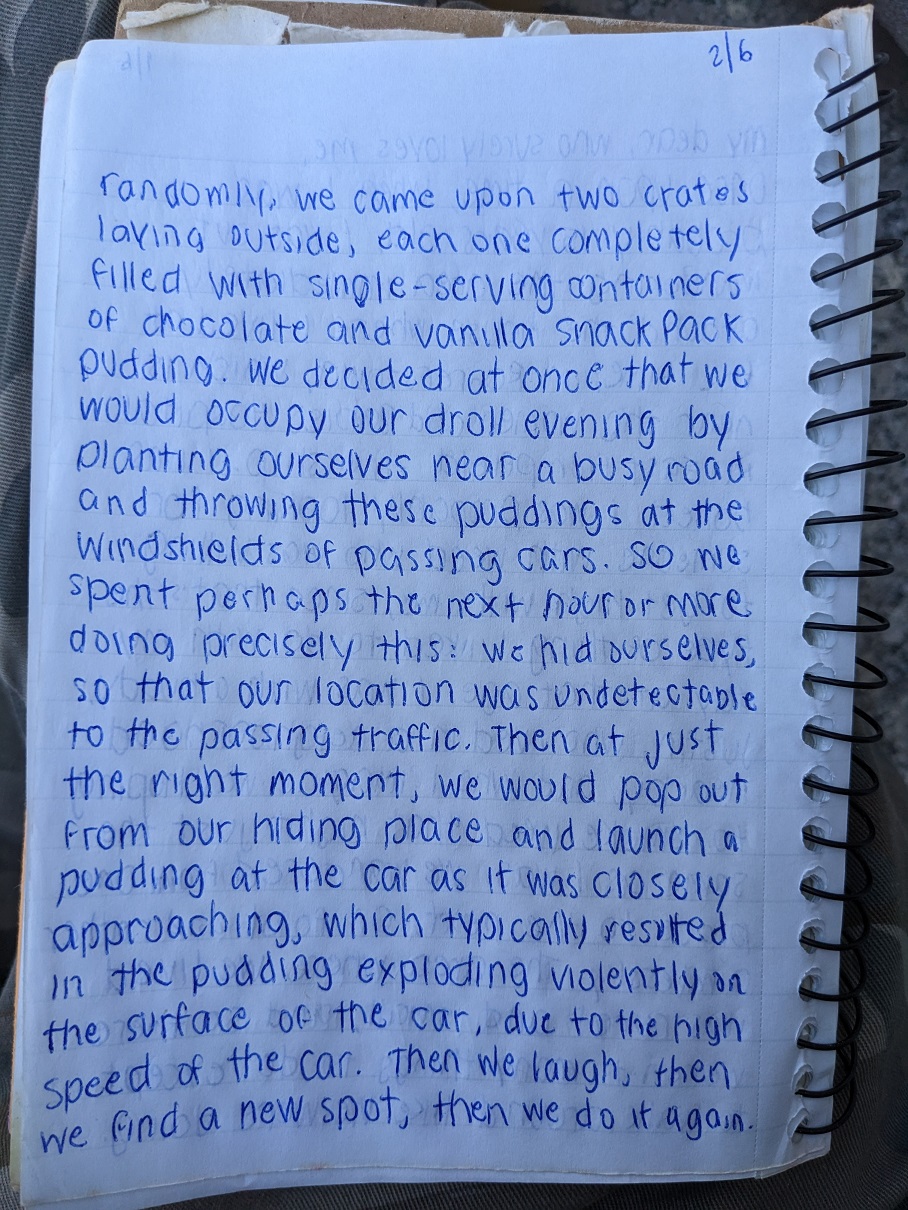 2/6
randomly, we came upon two crates
laying outside, each one completely
filled with single-serving containers
of chocolate and vanilla snack pack
pudding. we decided at once that we
would occupy our droll evening by
planting ourselves near a busy road
and throwing these puddings at the
windshields of passing cars. so we
spent perhaps the next hour or more
doing precisely this: we hid ourselves,
so that our location was undetectable
to the passing traffic. Then at just
the right moment, we would pop out
from our hiding place and launch a
pudding at the car as it was closely
approaching, which typically resulted
in the pudding exploding violently on
the surface of the car, due to the high
speed of the car. Then we laugh, then
we find a new spot, then we do it again.